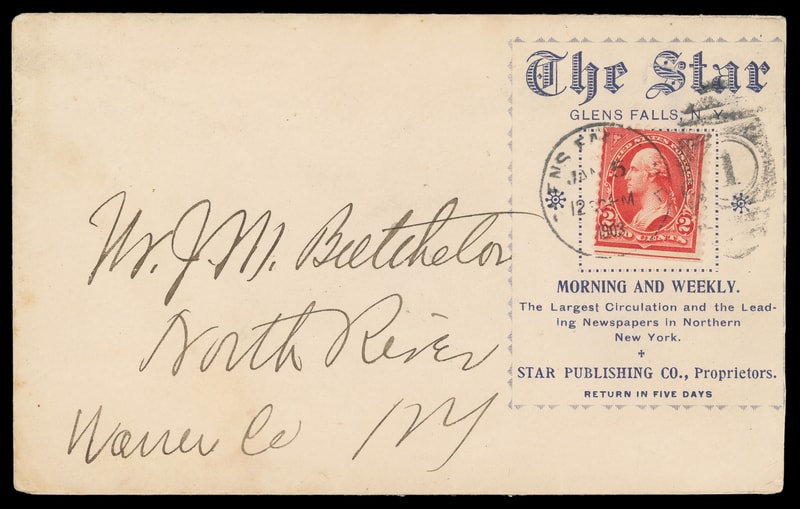 The Star
GLENS FALLS, N. Y.
ENS FAL
JAN 5
12 M
1903
1
UNITED STATES POSTAGE
2 2
TWO CENTS
MORNING AND WEEKLY.
The Largest Circulation and the Lead-
ing Newspapers in Northern
New York.
STAR PUBLISHING CO., Proprietors.
RETURN IN FIVE DAYS
Mr. J. M. Butchelor
North River
Warren Co NY